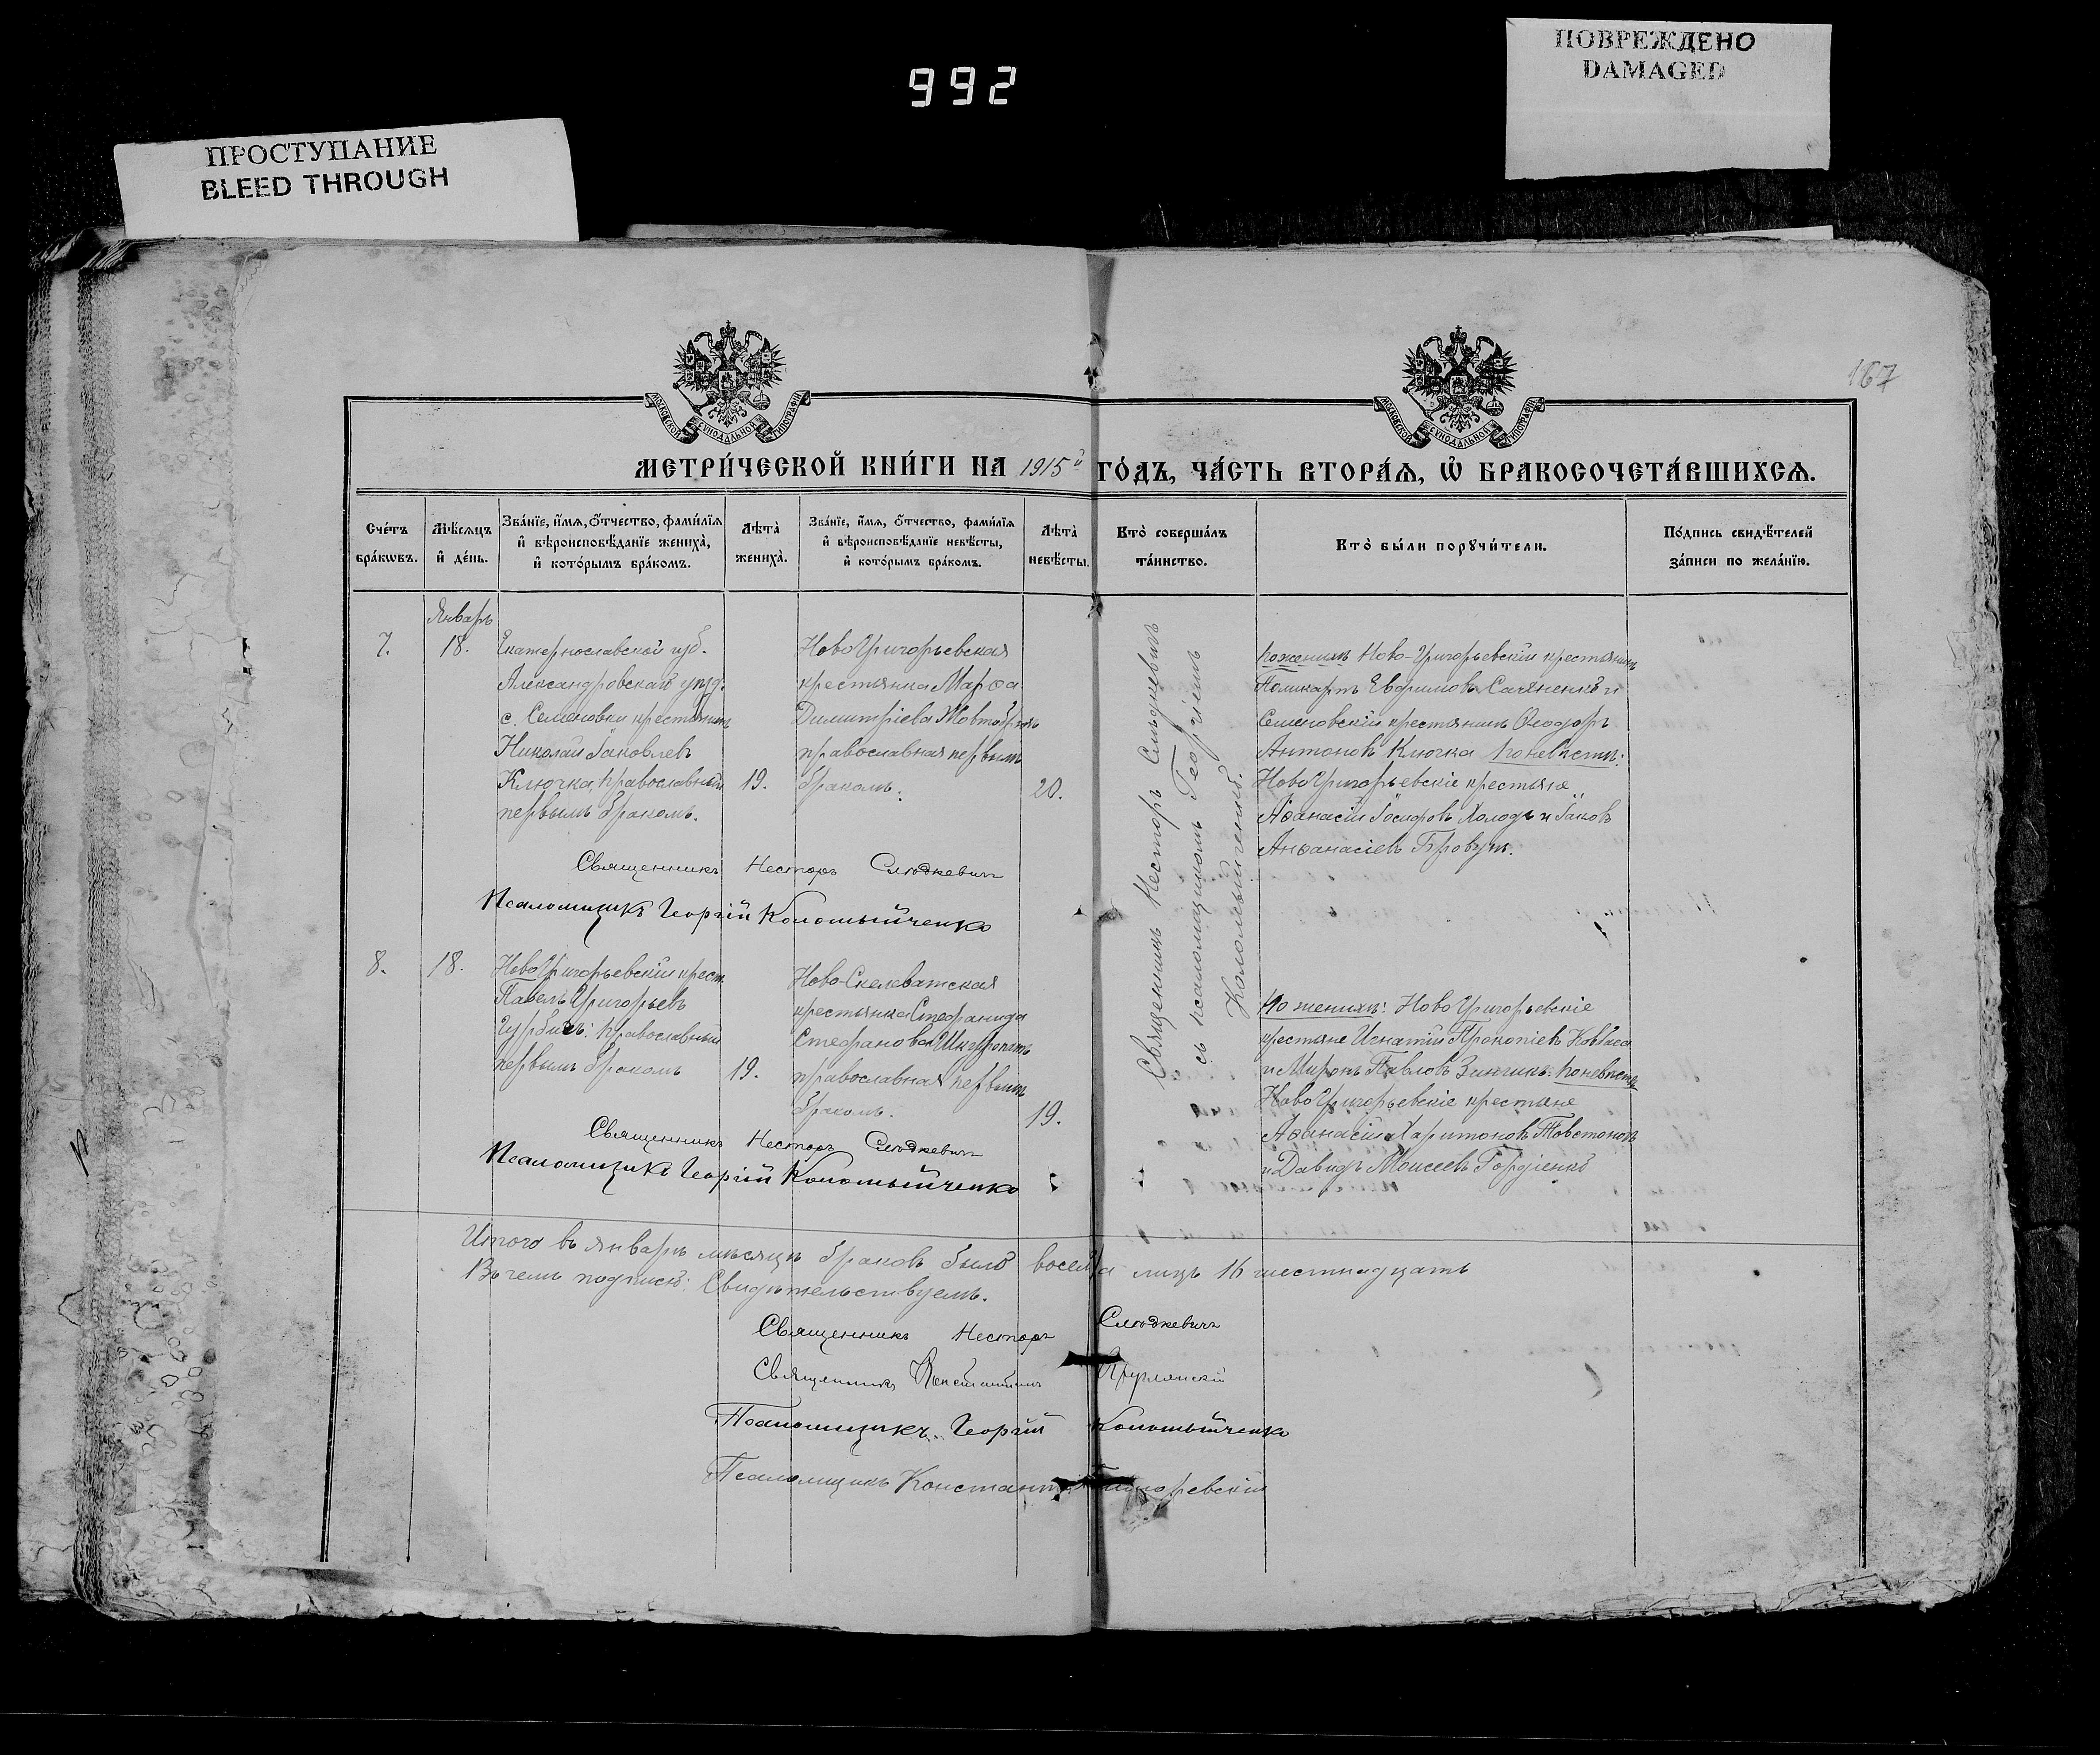 992
ПОВРЕЖДЕНО
DAMAGED
ПРОСТУПАНИЕ
BLEED THROUGH
167
МОСКОВСКОЙ СѴНОДАЛЬНОЙ ТИПОГРАФІИ
МОСКОВСКОЙ СѴНОДАЛЬНОЙ ТИПОГРАФІИ
МЕТРИ́ЧЕСКОЙ КНИ́ГИ НА 1915й ГО́ДЪ, ЧА́СТЬ ВТОРА́Ѧ, Ѡ҆ БРАКОСОЧЕТА́ВШИХСѦ.
Сче́тъ бра́кѡвъ.
Мѣ́сѧцъ и҆ де́нь.
Зва́нїе, и҆́мѧ, ѻ҆́тчество, фами́лїѧ
и҆ вѣроисповѣ́данїе жениха̀,
и҆ кото́рымъ бра́комъ.
Лѣта̀ жениха̀.
Зва́нїе, и҆́мѧ, ѻ҆́тчество, фами́лїѧ
и҆ вѣроисповѣ́данїе невѣ́сты,
и҆ кото́рымъ бра́комъ.
Лѣта̀ невѣ́сты.
Кто̀ соверша́лъ та́инство.
Кто̀ бы́ли порꙋчи́тели.
По́дпись свидѣ́телей
за́писи по жела́нїю.
Январь
7.
18.
Екатеринославской губ.
Александровскаго уѣзд.
с. Семеновки крестьянинъ
Николай Іаковлевъ
Ключка, православный
первымъ бракомъ.
19.
Ново Григорьевская
крестьянка Марѳа
Димитріева Жовтобрюхъ
православная первымъ
бракомъ.
20.
Священникъ Несторъ Слюдкевичъ
съ псаломщикомъ Георгіемъ
Коломыйченко.
По женихѣ Ново-Григорьевскій крестьянинъ
Поликарпъ Евфимовъ и
Семеновскій крестьянинъ Ѳеодоръ
Антоновъ Ключка По невѣстѣ:
Ново Григорьевскіе крестьяне
Аѳанасій Іосифовъ Холодъ и Іаковъ
Аѳанасіевъ Бровун.
Священникъ Несторъ Слюдкевичъ
Псаломщикъ Георгій Коломыйченко
8.
18.
Ново Григорьевскій крест.
Павелъ Григорьевъ
православный
первымъ бракомъ
19.
Ново-Скелеватская
крестьянка Стефанида
Стефанова
православная первымъ
бракомъ.
19.
По женихѣ: Ново Григорьевскіе
крестьяне Игнатій Прокопіевъ Ковбаса
и Миронъ Павловъ Зинчикъ: По невѣстѣ
Ново Григорьевскіе крестьяне
Аѳанасій Харитоновъ Товстоногъ
и Давидъ Моисеевъ Гордіенко
Священникъ Несторъ Слюдкевичъ
Псаломщикъ Георгій Коломыйченко
Итого въ январѣ мѣсяцѣ браковъ было восемь а лицъ 16 шестнадцать
Въ чемъ подписью Свидѣтельствуемъ.
Священникъ Несторъ Слюдкевичъ
Священникъ Константинъ
Псаломщикъ Георгій Коломыйченко
Псаломщикъ